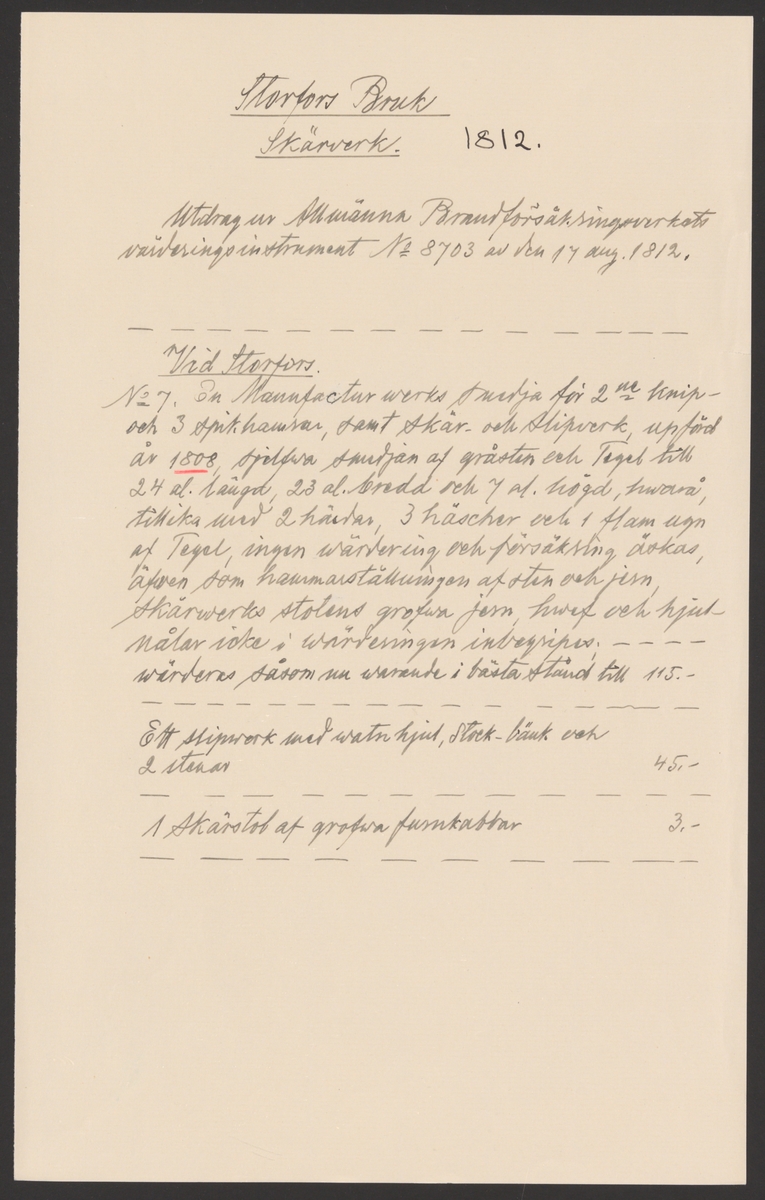 Storfors Bruk
Skärverk. 1812.
Utdrag ur Allmänna Brandförsäkringsverkets
värderingsinstrument No 8703 av den 17 aug. 1812.
Vid Storfors.
No 7. En Manufactur werks smedja för 2ne knip-
och 3 spikhamrar, samt skär- och slipverk, uppförd
år 1808, sjelfwa smedjan af gråsten och Tegel till
24 al. längd, 23 al. bredd och 7 al. högd, hwarå,
tillika med 2 härdar, 3 häscher och 1 flam ugn
af Tegel, ingen wärdering och försäkring äskas,
äfven som hammarställningen af sten och jern,
skärwerks stolens grofwa jern, hwef och hjul-
nålar icke i wärderingen inbegripes; – – – –
wärderas såsom nu warande i bästa stånd till 115.–
Ett slipwerk med watn hjul, stock- bänk och
2 stenar 45.–
1 Skärstol af grofwa furukabbar 3.–